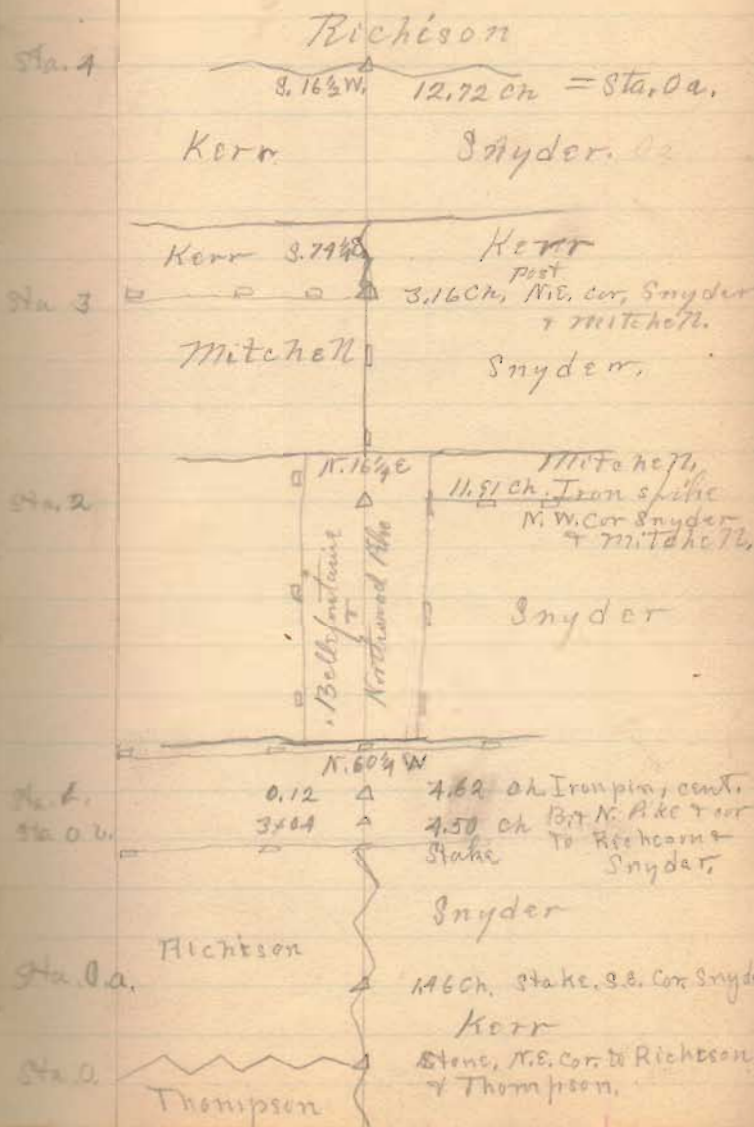 Richison
Sta. 4
S. 16½ W. 12.72 Ch = Sta. 0a.
Kerr Snyder.
Kerr S. 74¼ E Kerr
post
Sta 3 3.16 Ch, N.E. cor, Snyder
& Mitchell.
Mitchell Snyder.
N. 16¼ E Mitchell,
Sta. 2 11.91 Ch. Iron spike
N.W. Cor Snyder
& Mitchell,
Bellefontaine
&
Northwood Pike
Snyder
N. 60¼ W
0.12 4.62 Ch Iron pin, cent.
Sta 0 b. 4.50 Ch B. & N. Pike & cor
Stake to Richison &
Snyder,
Snyder
Richison
Sta. 0.a. 1.46 Ch, Stake. S.E. Cor. Snyd
Kerr
Sta. 0. Stone, N.E. cor. to Richison
& Thompson.
Thompson